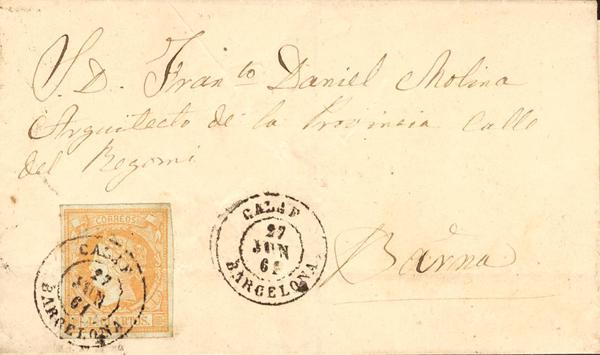 S. D. Fran^co Daniel Molina
Arquitecto de la Provincia Calle
del Regomi
CORREOS
CALAF
27
JUN
61
BARCELONA
CALAF
27
JUN
61
BARCELONA
Barna